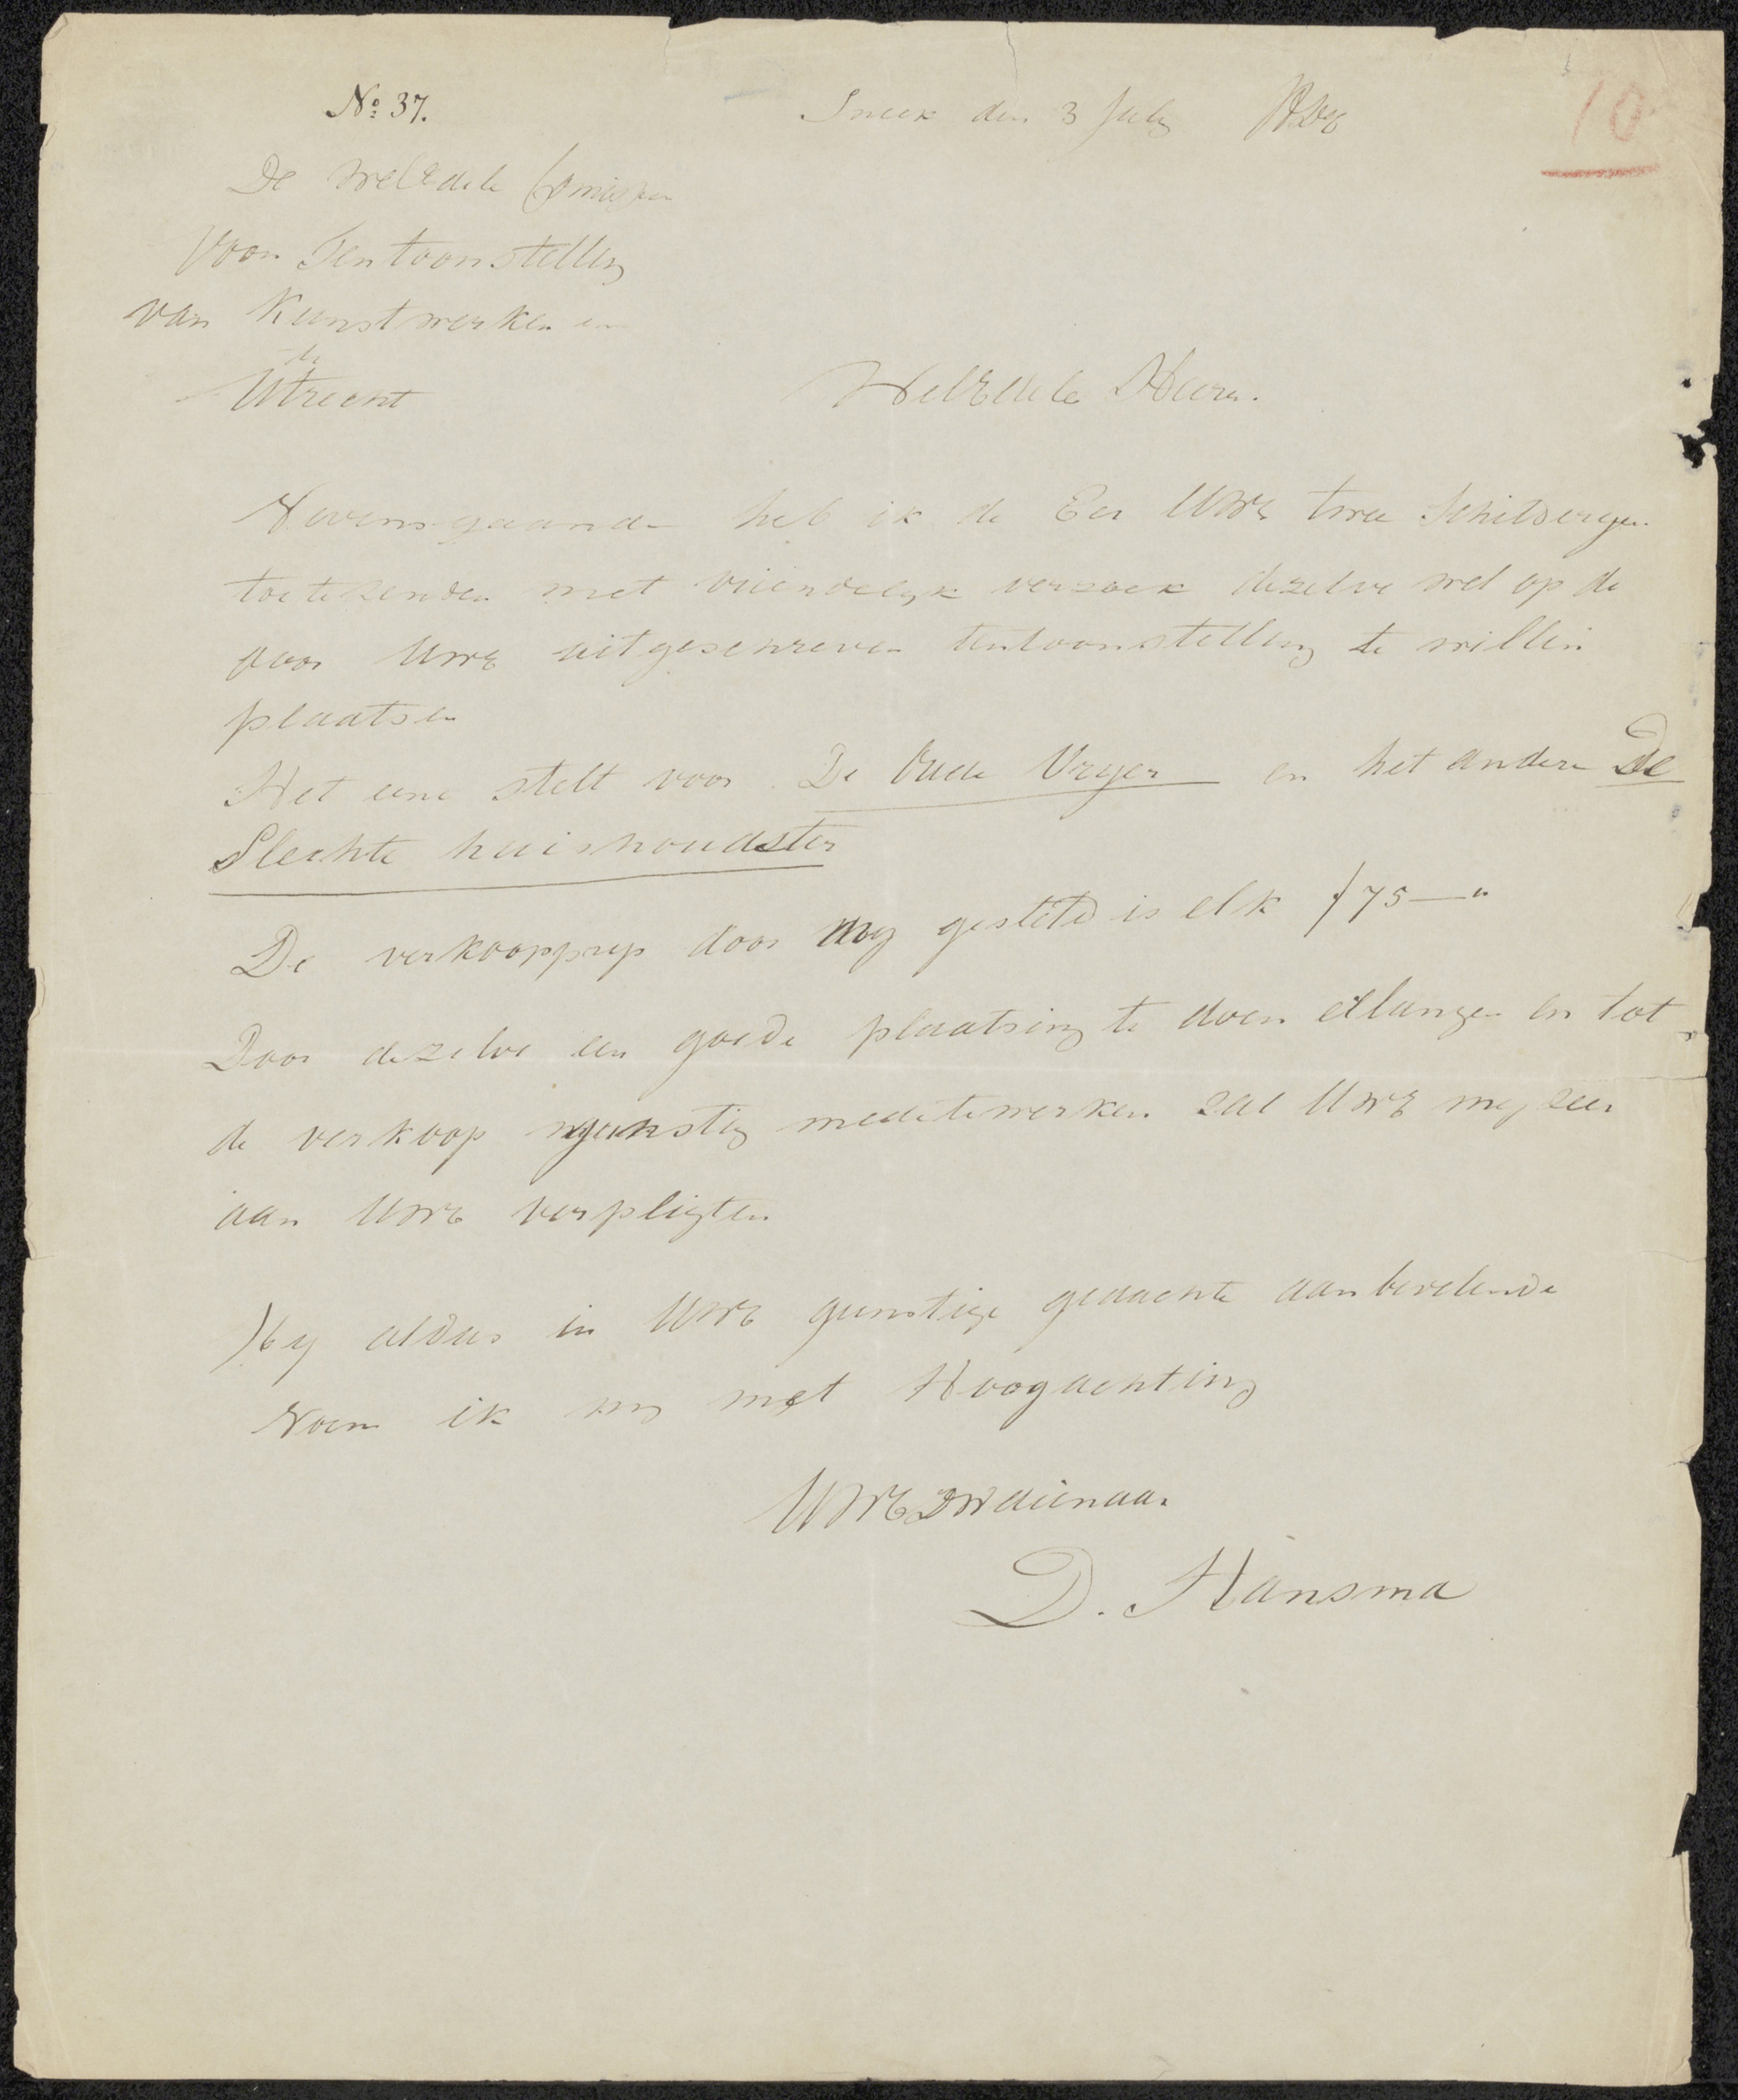 No: 37.
Sneek den 3 July
10
De WelEdele Comissie
voor Tentoonstelling
van Kunstwerken
te
Utrecht
WelEdele Heeren.
Nevensgaande heb ik de Eer UWE twee Schilderyen
toetezenden met vriendelyk verzoek dezelve wel op de
door UWE uitgeschreven tentoonstelling te willen
plaatsen
Het eene stelt voor De Oude Vryer en het andere De
Slechte huishoudster
De verkoopprys door my gesteld is elk f 75 — "
Door dezelve een goede plaatsing te doen erlangen en tot
de verkoop gunstig medetewerken zal UWE my zeer
aan UWE verpligten
My aldus in UWE gunstige gedachte aanbevelende
Noem ik my met Hoogachting
UWEDWdienaar
D. Hansma